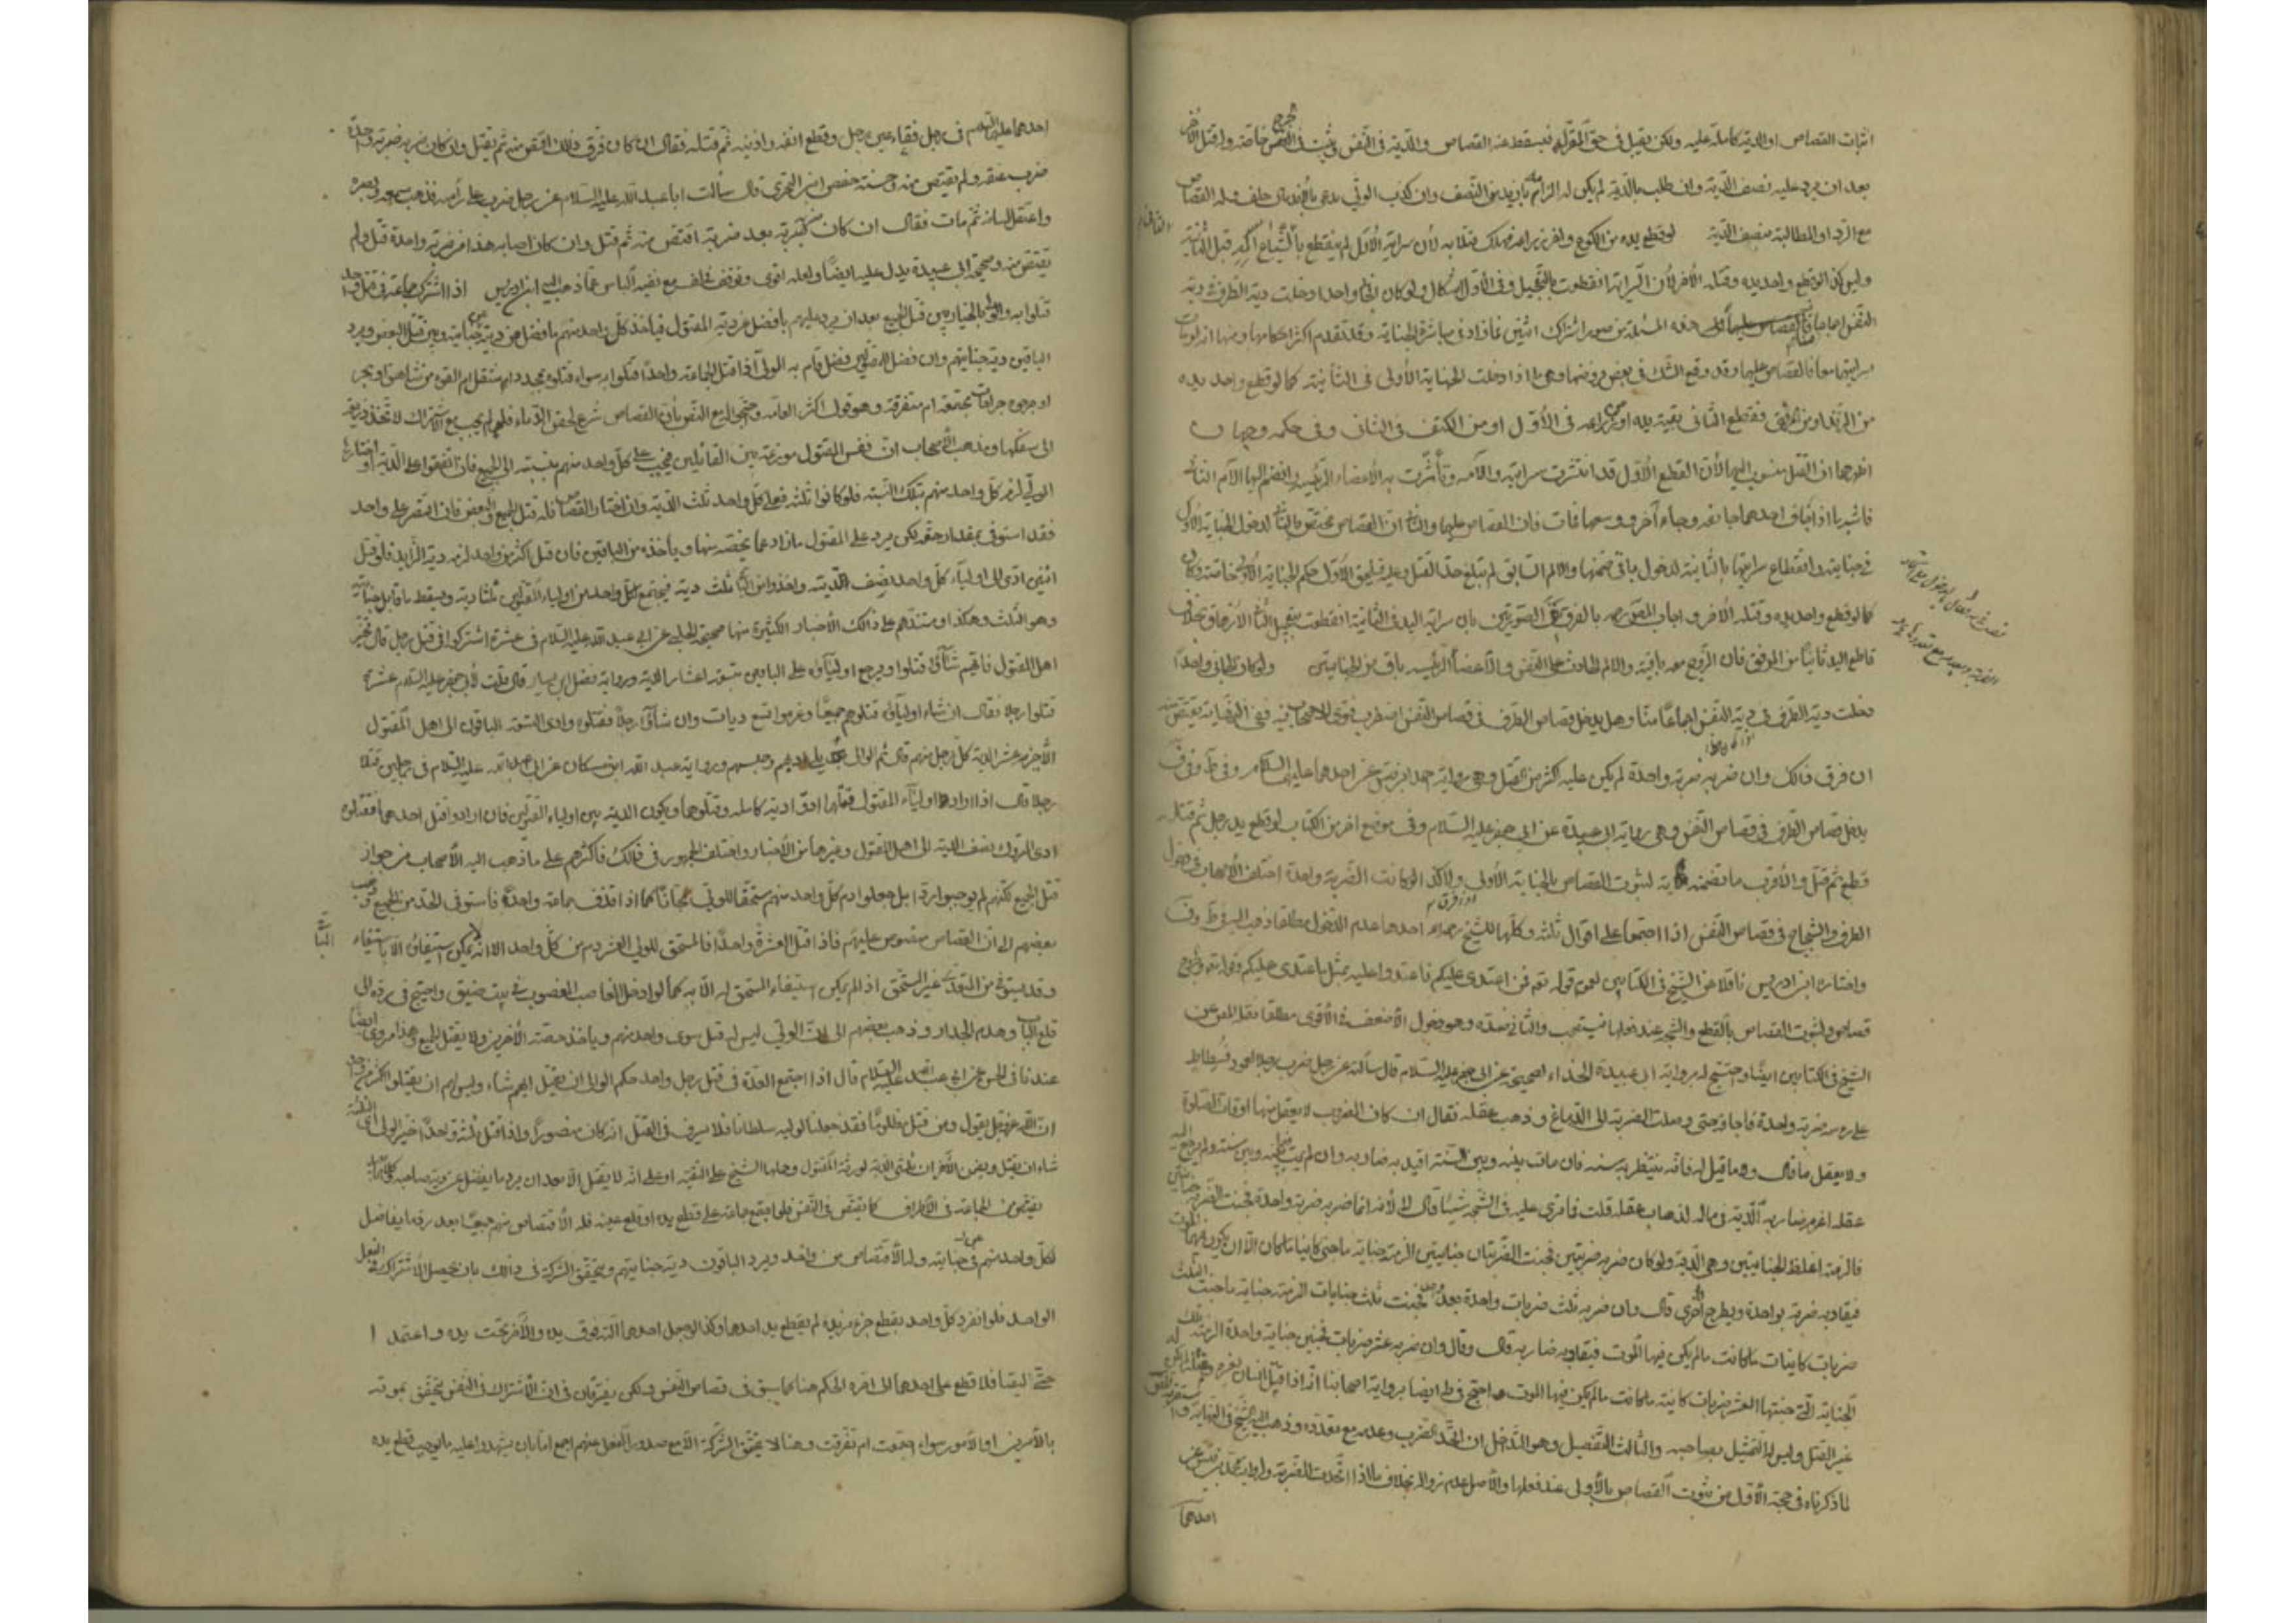 اثبات القصاص او الدية كاملة عليه ولكن يقبل في حق المقر له فيسقط عنه القصاص والدية في النفس ويثبت في الجرح خاصة ولو قتل الآخر
بعد ان يرد عليه نصف الدية وان طلب بالدية لم يكن له الزامه بازيد من النصف وان كذب الولي
مع الرد او المطالبة بنصف الدية لو قطع يده من الكوع واخر ذراعه فهلك قتلا به لأن سراية الأول لم ينقطع بالشياع قبل الثانية
وليس كذا لو قطع واحد يده وقتله الآخر لأن السراية انقطعت بالتعجيل وفي الأول اشكال ولو كان الجاني واحدا دخلت دية الطرف في دية
النفس اجماعا هذه المسئلة من صور اشتراك اثنين فما زاد في مباشرة الجناية وقد تقدم اكثر احكامها ومنها انه لو مات
بسرايتهما معا فالقصاص عليهما وقد وقع الشك في بعض فروضها وهي ما اذا دخلت الجناية الأولى في الثانية كما لو قطع واحد يده
من الزند او من المرفق فقطع الثاني بقية يده او ذراعه في الأول او من الكتف في الثاني وفي حكمه وجهان
اظهرهما ان القتل منسوب اليهما لأن القطع الأول قد انتشرت سرايته وآلامه وتأثرت به الأعضاء الرئيسة وانضم اليها آلام الثاني
فاشبه ما اذا اجاف احدهما جائفة وجاء آخر ووسعها فمات فان القصاص عليهما والثاني ان القصاص مختص بالثاني لدخول الجناية الأولى
في جنايته وانقطاع سرايتها بالثانية لدخولها في ضمنها والالم السابق لم يبلغ حد القتل وعليه فيلحق الأول حكم الجناية الأولى خاصة وكان
كما لو قطع واحد يده وقتله الآخر واجاب المص ره بالفرق بين الصورتين بان سراية اليد في الثانية انقطعت بتعجيل الثاني الازهاق بخلاف
قاطع اليد ثانيا من المرفق فان الروح معه باقية والالم الحادث على النفس والأعضاء الرئيسة باق من الجنايتين ولو كان الجاني واحدا
دخلت دية الطرف في دية النفس اجماعا منا وهل يدخل قصاص الطرف في قصاص النفس اضطرب فتوى الاصحاب فيه ففي النهاية يقتص منه
ان فرق ذلك وان ضربه ضربة واحدة لم يكن عليه اكثر من القتل وهي رواية محمد بن قيس عن احدهما عليهما السلام وفي ط وف
يدخل قصاص الطرف في قصاص النفس وهي رواية ابي عبيدة عن ابي جعفر عليه السلام وفي موضع اخر من الكتاب لو قطع يد رجل ثم قتله
قطع ثم قتل والأقرب ما تضمنته النهاية لثبوت القصاص بالجناية الأولى ولا كذا لو كانت الضربة واحدة اختلف الأصحاب في دخول
الطرف والشجاج في قصاص النفس اذا اجتمعا على اقوال ثلثة وكلها للشيخ احدها عدم الدخول مطلقا ذهب اليه في ط وف
واختاره ابن ادريس ناقلا عن الشيخ في الكتابين لعموم قوله تعه فمن اعتدى عليكم فاعتدوا عليه بمثل ما اعتدى عليكم وقوله تعه والجروح
قصاص ولثبوت القصاص بالقطع والشجه عند فعلها فيستصحب والثاني ضده وهو دخول الأضعف في الأقوى مطلقا نقله المص عن
الشيخ في الكتابين ايضا واحتج له برواية ابي عبيدة الحذاء الصحيحة عن ابي جعفر عليه السلام قال سألته عن رجل ضرب رجلا بعمود فسطاط
على رأسه ضربة واحدة فاجافه حتى وصلت الضربة الى الدماغ وذهب عقله فقال ان كان المضروب لا يعقل منها اوقات الصلوة
ولا يعقل ما قال ولا ما قيل له فانه ينتظر به سنة فان مات بينه وبين السنة اقيد به ضاربه وان لم يمت بينه وبين سنة ولم يرجع اليه
عقله اغرم ضاربه الدية في ماله لذهاب عقله قلت فما ترى عليه في الشجه شيئا قال لا لأنه انما ضربه ضربة واحدة فجنت الضربة جنايتين
فالزمته اغلظ الجنايتين وهي الدية ولو كان ضربه ضربتين فجنت الضربتان جنايتين الزمته جناية ما جنى كائنا ما كان الا ان يكون فيهما الموت
فيقاد به ضربة بواحدة ويطرح الاخرى قال وان ضربه ثلث ضربات واحدة بعد واحدة فجنت ثلث جنايات الزمته جناية ما جنت الثلث
ضربات كائنات ما كانت ما لم يكن فيها الموت فيقاد به ضاربه قال وقال وان ضربه عشر ضربات فجنين جناية واحدة الزمته تلك
الجناية التي جنتها العشر ضربات كائنة ما كانت ما لم يكن فيها الموت واحتج في ط ايضا برواية اصحابنا انه اذا قتل انسان غيره
غير القتل وليس له التمثيل بصاحبه والثالث التفصيل وهو التداخل ان اتحد الضرب وعدمه مع تعدده وذهب اليه الشيخ في النهاية
لما ذكرناه في حجة الأول من ثبوت القصاص بالأولى عند فعلها والأصل عدم زواله بخلاف ما اذا اتحدت الضربة ولرواية محمد بن قيس عن
احدهما
احدهما عليهما السلام في رجل فقاء عين رجل وقطع انفه واذنيه ثم قتله فقال ان كان فرق ذلك اقتص منه ثم يقتل وان كان ضربه ضربة واحدة
ضرب عنقه ولم يقتص منه وحسنة حفص ابن البختري قال سألت ابا عبد الله عليه السلام عن رجل ضرب على رأسه فذهب سمعه وبصره
واعتقل لسانه ثم مات فقال ان كان ضربه ضربة بعد ضربة اقتص منه ثم قتل وان كان اصابه هذا من ضربة واحدة قتل ولم
يقتص منه وصحيحة ابي عبيدة يدل عليه ايضا ولعله اقوى وتوقف في لف مع نفيه الباس عما ذهب اليه ابن ادريس اذا اشترك جماعة في قتل واحد
قتلوا به والولي بالخيار بين قتل الجميع بعد ان يرد عليهم ما فضل عن دية المقتول فيأخذ كل واحد منهم ما فضل عن دية جنايته وبين قتل البعض ويرد
الباقين دية جنايتهم وان فضل للمقتولين فضل قام به الولي اذا قتل الجماعة واحدا قتلوا به سواء قتلوه بمحدد او بمثقل ام القوه من شاهق او بحر
او جرحوه جراحات مجتمعة ام متفرقة وهو قول اكثر العامة بأن القصاص شرع لحقن الدماء فلو لم يجب مع الاشتراك لاتخذ ذريعة
الى سفكها ومذهب الأصحاب ان نفس المقتول موزعة بين القاتلين فيجب على كل واحد منهم بنسبته الى الجميع فان اتفقوا على الدية او اختارها
الولي لزم كل واحد منهم بتلك النسبة فلو كانوا ثلثة فعلى كل واحد ثلث الدية وان اختار القصاص فله قتل الجميع والبعض فان اقتصر على واحد
فقد استوفى بمقدار حقه لكن يرد على المقتول ما زاد عما يخصه منها ويأخذه من الباقين فان قتل اكثر من واحد لزمه دية الزايد فلو قتل
اثنين ادى الى اولياء كل واحد نصف الدية واخذوا من الباقي ثلث دية فيجتمع لكل واحد من اولياء المقتولين ثلثا دية ويسقط ما قابل جنايته
وهو الثلث وهكذا ومستندهم على ذلك الأخبار الكثيرة منها صحيحة الحلبي عن ابي عبد الله عليه السلام في عشرة اشتركوا في قتل رجل قال تخير
اهل المقتول فايهم شاؤا قتلوا ويرجع اولياؤه على الباقين بتسعة اعشار الدية ورواية فضل ابن يسار قال قلت لأبي جعفر عليه السلام عشرة
قتلوا رجلا فقال ان شاء اولياؤه قتلوهم جميعا وغرموا تسع ديات وان شاؤا رجلا فقتلوه وادى التسعة الباقون الى اهل المقتول
الأخير عشر الدية كل رجل منهم قال ثم الوالي يلي ادبهم وحبسهم ورواية عبد الله ابن مسكان عن ابي عبد الله عليه السلام في رجلين قتلا
رجلا قال اذا اراد اولياء المقتول قتلهما ادوا دية كاملة وقتلوهما ويكون الدية بين اولياء المقتولين فان ارادوا قتل احدهما فقتلوه
ادى المتروك نصف الدية الى اهل المقتول وغيرها من الأخبار واختلف الجمهور في ذلك فاكثرهم على ما ذهب اليه الأصحاب من جواز
قتل الجميع لكنهم لم يوجبوا ردا بل جعلوا دم كل واحد منهم مستحقا للولي مجانا كما اذا قذف جماعة واحدا فاستوفى الحد من الجميع وذهب
بعضهم الى ان القصاص مفضوض عليهم فاذا قتل العشرة واحدا فالمستحق للولي العشر دم من كل واحد الا انه لا يمكن استيفائه الا باستيفاء
وقد يستوفى من المتعدي غير المستحق اذا لم يمكن استيفاء المستحق له الا به كما لو ادخل الغاصب المغصوب في بيت ضيق واحتيج في رده الى
قلع الباب وهدم الجدار وذهب بعضهم الى ان الولي ليس له قتل سوى واحد منهم ويأخذ حصته الآخرين ولا يقتل الجميع وهذا مروي ايضا
عندنا في الحسن عن ابي عبد الله عليه السلام قال اذا اجتمع العدة في قتل رجل واحد حكم الوالي ان يقتل ايهم شاء وليس لهم ان يقتلوا اكثر من واحد
ان الله عز وجل يقول ومن قتل مظلوما فقد جعلنا لوليه سلطانا فلا يسرف في القتل انه كان منصورا واذا قتل ثلثة واحدا خير الولي اي الثلثة
شاء ان يقتل ويضمن الآخران ثلثي الدية لورثة المقتول وحملها الشيخ على التقية او على انه لا يقتل الا بعد ان يرد ما يفضل عن دية صاحبه
يقتص من الجماعة في الأطراف كما يقتص في النفس فلو اجتمع جماعة على قطع يده او قلع عينه فله الاقتصاص منهم جميعا بعد رد ما يفاضل
لكل واحد منهم عن جنايته وله الاقتصاص من واحد ويرد الباقون دية جنايتهم ويتحقق الشركة في ذلك بان يحصل الاشتراك في الفعل
الواحد فلو انفرد كل واحد بقطع جزء من يده لم يقطع يد احدهما وكذا لو جعل احدهما آلته فوق يده والآخر تحت يده واعتمدا
حتى التقتا فلا قطع على احدهما الى آخره الحكم هنا كما سبق في قصاص النفس ولكن يفترقان في ان الاشتراك في النفس يتحقق بموته
بالأمرين او الامور سواء اجتمعت ام تفرقت وهنا لا يتحقق الشركة الا مع صدور الفعل عنهم اجمع اما بان يشهدوا عليه بما يوجب قطع يده